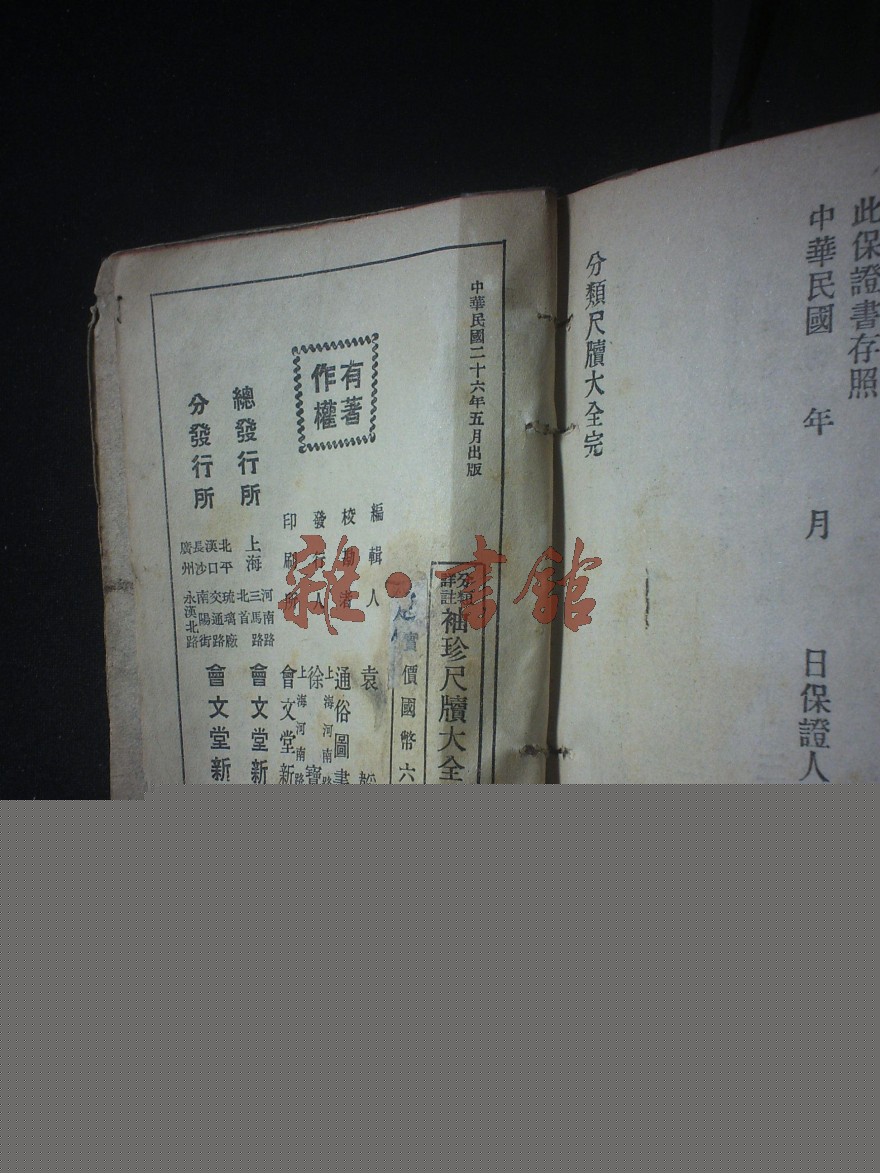 此保證書存照
中華民國 年 月 日保證人
分類尺牘大全完
中華民國二十六年五月出版
分類詳註袖珍尺牘大全
價國幣六
編輯人 袁
校勘者 通俗圖書
發行人 徐寶
上海河南路
印刷所 會文堂新
上海河南路
有著作權
總發行所 上海 河南路三馬路北首 會文堂新
分發行所 北平琉璃廠 漢口交通路 長沙南陽街 廣州永漢北路 會文堂新
雜·書館